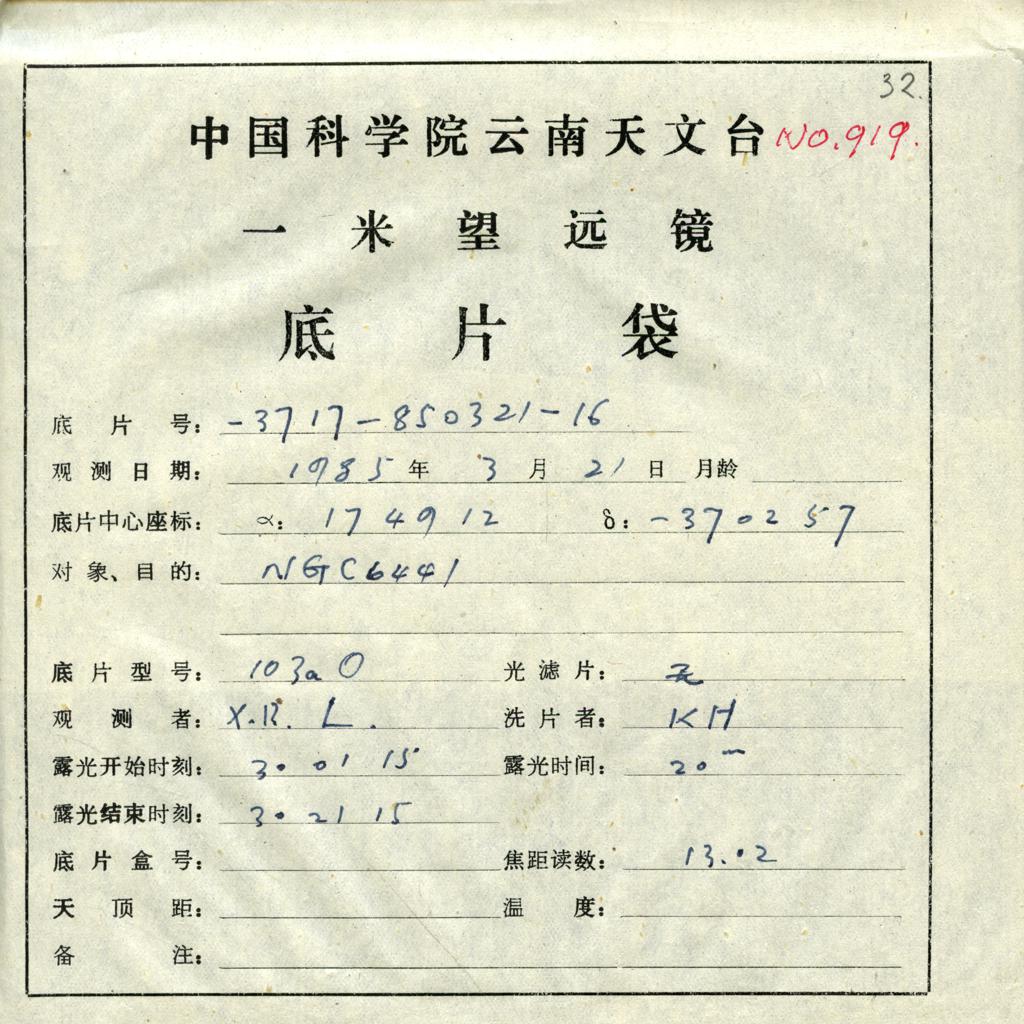 32.
中国科学院云南天文台 NO.919.
一米望远镜
底片袋
底片号: -3717-850321-16
观测日期: 1985年 3月 21日 月龄
底片中心座标: α: 17 49 12 δ: -37 02 57
对象、目的: NGC6441
底片型号: 103aO 光滤片: 无
观测者: X.R. L. 洗片者: KH
露光开始时刻: 30 01 15 露光时间: 20m
露光结束时刻: 30 21 15
底片盒号: 焦距读数: 13.02
天顶距: 温度:
备注: